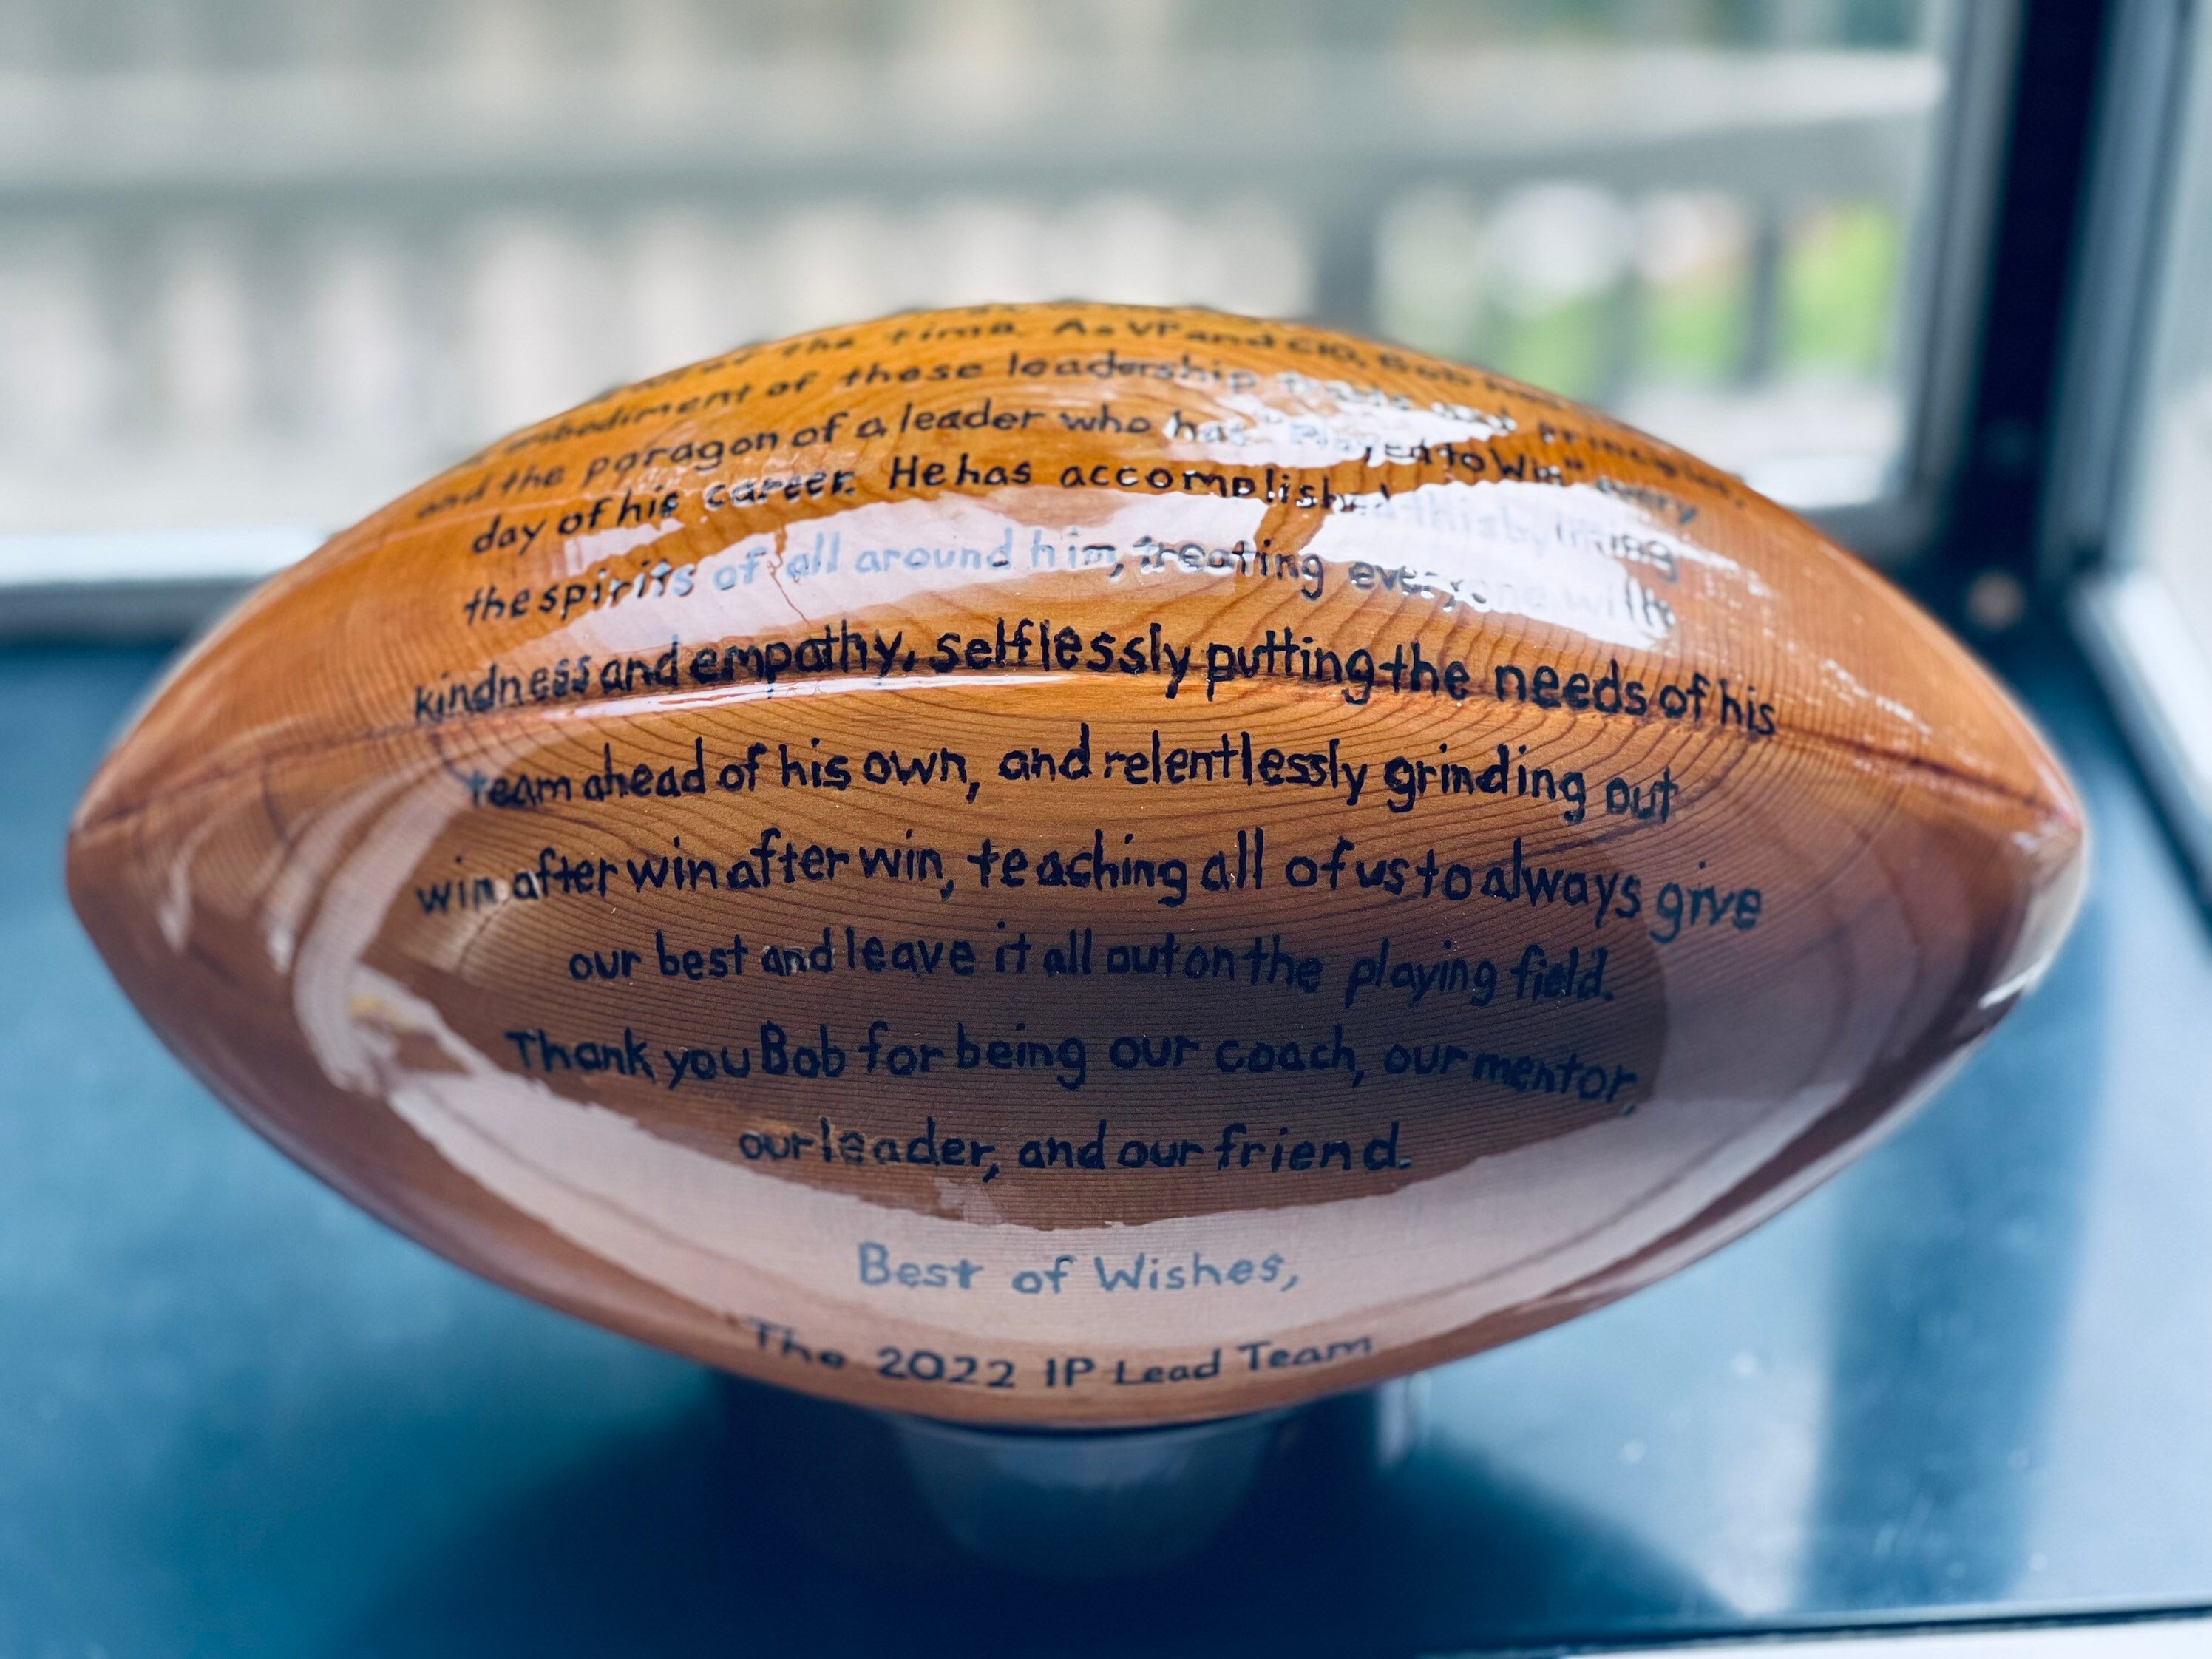 of the time. As VP and CIO, Bob
embodiment of these leadership traits and principles,
and the paragon of a leader who has "Played to Win" every
day of his career. He has accomplished this by lifting
the spirits of all around him, treating everyone with
kindness and empathy, selflessly putting the needs of his
team ahead of his own, and relentlessly grinding out
win after win after win, teaching all of us to always give
our best and leave it all out on the playing field.
Thank you Bob for being our coach, our mentor,
our leader, and our friend.
Best of Wishes,
The 2022 IP Lead Team